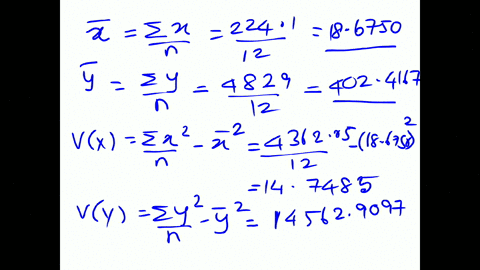 x̄ = Σx/n = 224.1/12 = 18.6750
ȳ = Σy/n = 4829/12 = 402.4167
V(x) = Σx²/n - x̄² = 4362.85/12 - (18.6750)²
= 14.7485
V(y) = Σy²/n - ȳ² = 14562.9097